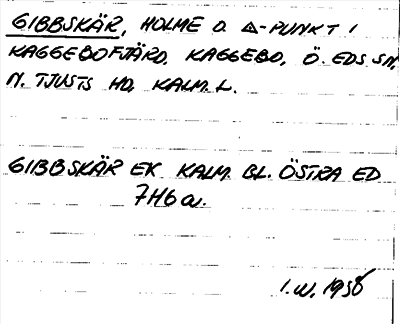 GIBBSKÄR, HOLME O. △-PUNKT I
KAGGEBOFJÄRD, KAGGEBO, Ö. EDS SN,
N. TJUSTS HD, KALM. L.
GIBBSKÄR EK KALM. BL. ÖSTRA ED
7H6a.
I.W. 1958